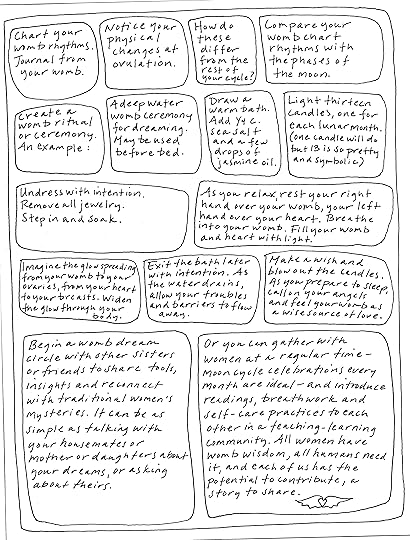 Chart your
womb rhythms.
Journal from
your womb.
Notice your
physical
changes at
ovulation.
How do
these
differ
from the
rest of
your cycle?
Compare your
womb chart
rhythms with
the phases of
the moon.
Create a
womb ritual
or ceremony.
An example:
A deep water
womb ceremony
for dreaming.
May be used
before bed.
Draw a
warm bath.
Add 1/4 c.
sea salt
and a few
drops of
jasmine oil.
Light thirteen
candles, one for
each lunar month.
(one candle will do
but 13 is so pretty
and symbolic)
Undress with intention.
Remove all jewelry.
Step in and soak.
As you relax, rest your right
hand over your womb, your left
hand over your heart. Breathe
into your womb. Fill your womb
and heart with light.
Imagine the glow spreading
from your womb to your
ovaries, from your heart
to your breasts. Widen
the glow through your
body.
Exit the bath later
with intention. As
the water drains,
allow your troubles
and barriers to flow
away.
Make a wish and
blow out the candles.
As you prepare to sleep,
call on your angels
and feel your womb as
a wise source of love.
Begin a womb dream
circle with other sisters
or friends to share tools,
insights and reconnect
with traditional women's
mysteries. It can be as
simple as talking with
your housemates or
mother or daughters about
your dreams, or asking
about theirs.
Or you can gather with
women at a regular time—
moon cycle celebrations every
month are ideal—and introduce
readings, breathwork and
self-care practices to each
other in a teaching-learning
community. All women have
womb wisdom, all humans need
it, and each of us has the
potential to contribute, a
story to share.